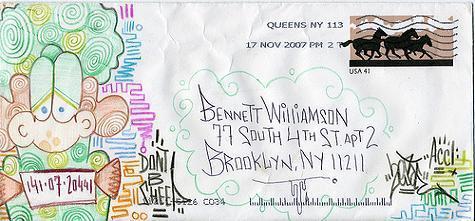 QUEENS NY 113
17 NOV 2007 PM 2 T
USA 41
BENNETT WILLIAMSON
77 SOUTH 4TH ST. APT 2
BROOKLYN, NY 11211
DON'T
141·07·20441
C034